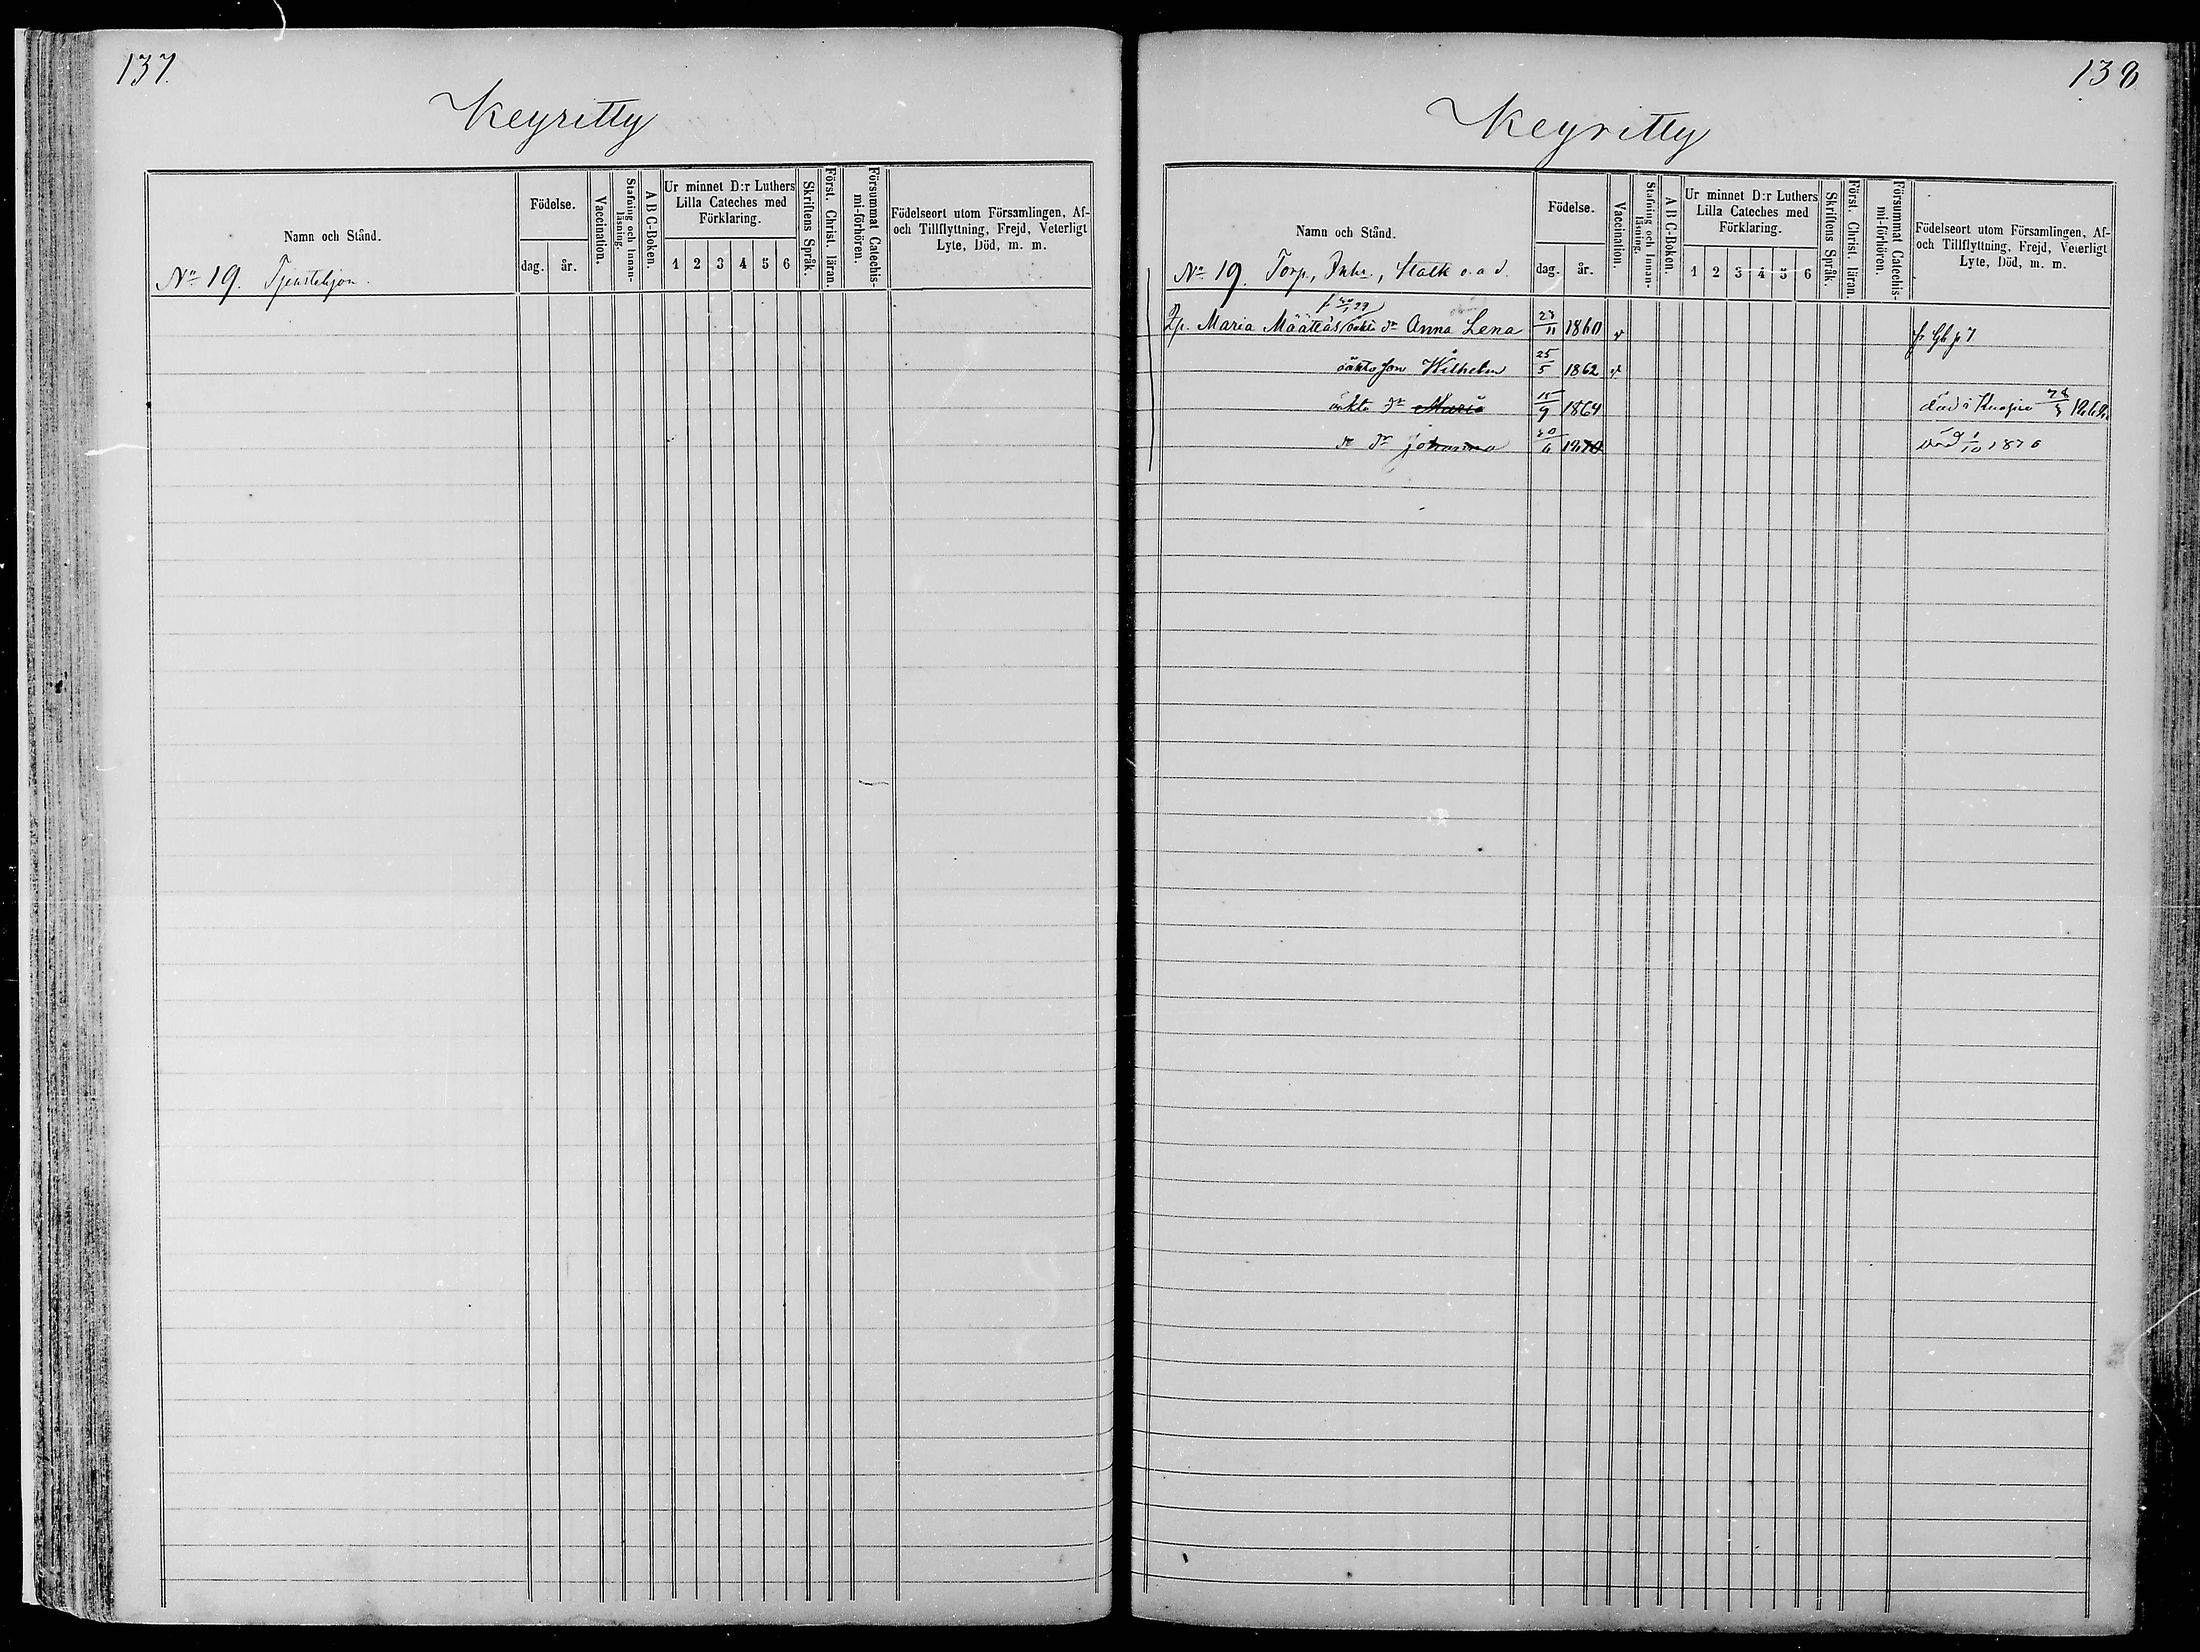 137.
Keyritty
Namn och Stånd.
Födelse.
dag. år.
Vaccination.
Stafning och Innan-
läsning.
A B C-Boken.
Ur minnet D:r Luthers
Lilla Cateches med
Förklaring.
1 2 3 4 5 6
Skriftens Språk.
Först. Christ. läran.
Försummat Catechis-
mi-förhören.
Födelseort utom Församlingen, Af-
och Tillflyttning, Frejd, Veterligt
Lyte, Död, m. m.
No 19. Tjenstehjon.
138
Keyritty
Namn och Stånd.
Födelse.
dag. år.
Vaccination.
Stafning och Innan-
läsning.
A B C-Boken.
Ur minnet D:r Luthers
Lilla Cateches med
Förklaring.
1 2 3 4 5 6
Skriftens Språk.
Först. Christ. läran.
Försummat Catechis-
mi-förhören.
Födelseort utom Församlingen, Af-
och Tillflyttning, Frejd, Veterligt
Lyte, Död, m. m.
No 19. Torp., Inh:, Statk o. a d.
Maria Määttäs oäkta dr Anna Lena 23/11 1860 v
oäkta son Wilhelm 25/5 1862 v
oäkta dr Maria 15/9 1864 död i Kuopio 1868
dr Johanna 20/6 1870 död 1/10 1870